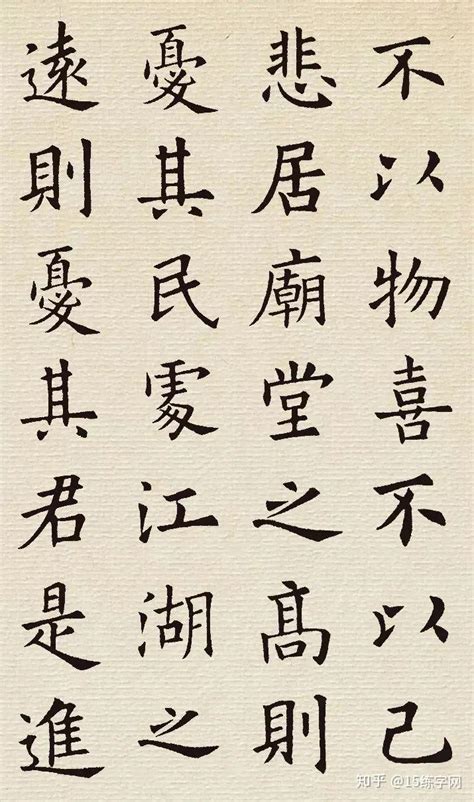 不以物喜不以己
悲居廟堂之髙則
憂其民處江湖之
遠則憂其君是進
知乎 @15练字网